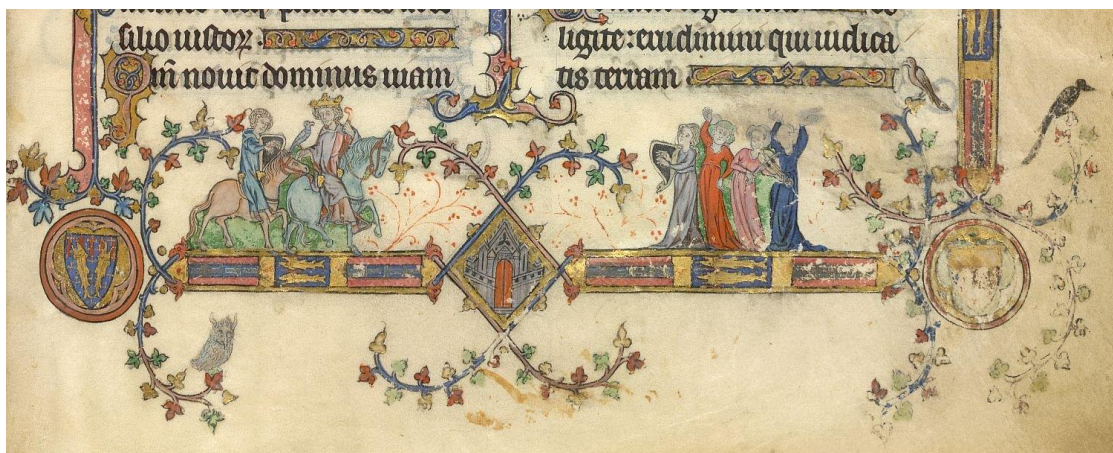 silio iustoꝝ.
Qm̄ nouit dominus uiam
ligite: erudimini qui iudica
tis terram.